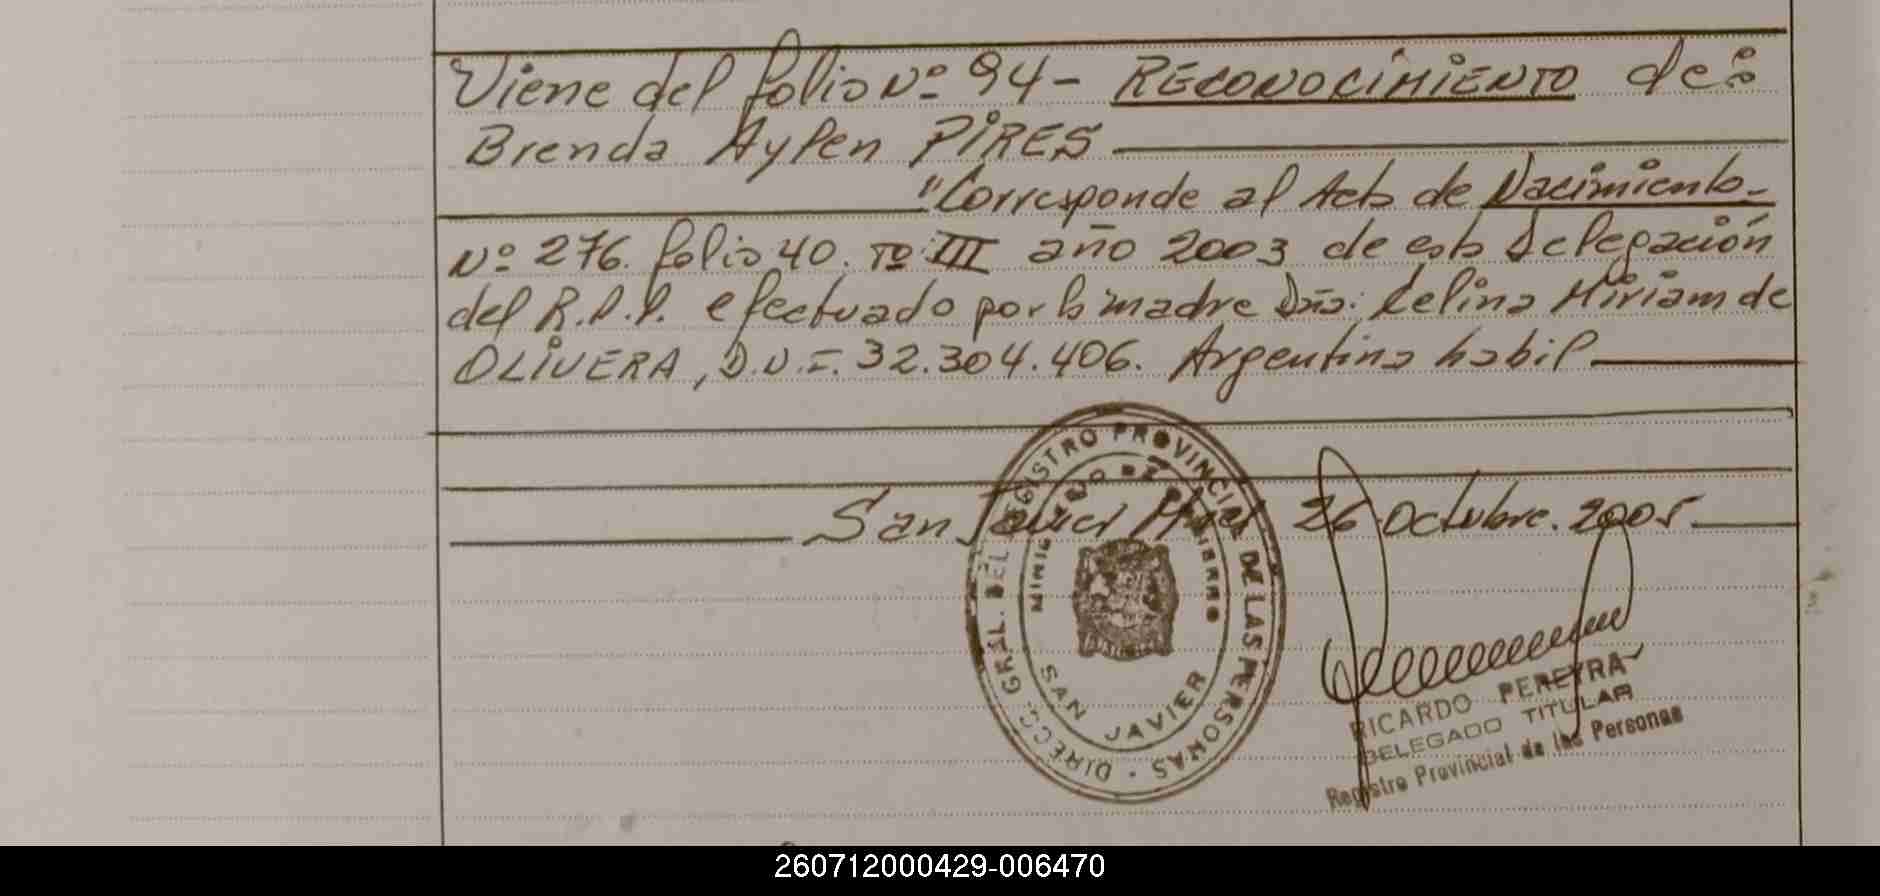 Viene del folio Nº 94 - RECONOCIMIENTO de:
Brenda Aylen PIRES
"Corresponde al Acta de Nacimiento-
Nº 276. folio 40. Tº III año 2003 de esta Delegación
del R.P.P. efectuado por la madre Dña: Celina Miriam de
OLIVERA, D.N.I. 32.304.406. Argentina habil
San Javier Mnes 26 Octubre. 2005
DIRECC. GRAL. DEL REGISTRO PROVINCIAL DE LAS PERSONAS
MINISTERIO DE GOBIERNO
SAN JAVIER
RICARDO PEREYRA
DELEGADO TITULAR
Registro Provincial de las Personas
260712000429-006470